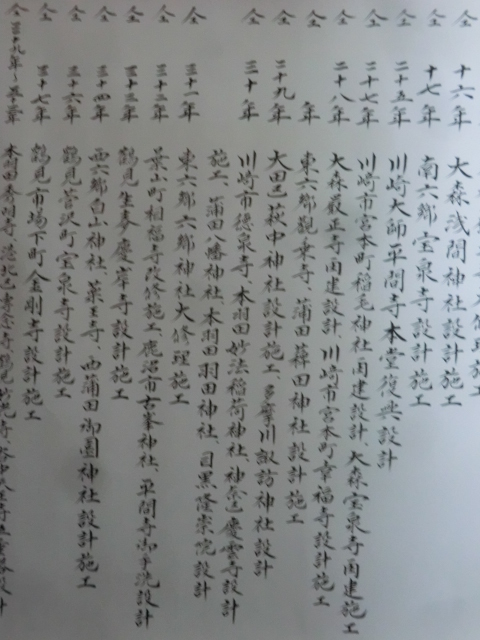 仝 十六年 大森浅間神社設計施工
仝 十七年 南六郷宝泉寺設計施工
仝 二十五年 川崎大師平間寺本堂復興設計
仝 二十七年 川崎市宮本町稲毛神社再建設計、大森宝泉寺再建施工
仝 二十八年 大森厳正寺再建設計、川崎市宮本町幸福寺設計施工
仝 年 東六郷観乗寺、蒲田薭田神社設計施工
仝 二十九年 大田区萩中神社設計施工、多摩川諏訪神社設計
仝 三十年 川崎市徳泉寺、本羽田妙法稲荷神社、神奈区慶雲寺設計
施工、蒲田八幡神社、本羽田羽田神社、目黒隆崇院設計
仝 三十一年 東六郷六郷神社大修理施工
仝 三十二年 葉山町相福寺改修施工、鹿沼市古峯神社、平間寺御手洗設計
仝 三十三年 鶴見生麦慶岸寺設計施工
仝 三十四年 西六郷白山神社、薬王寺、西蒲田御園神社設計施工
仝 三十六年 鶴見宮沢町宝泉寺設計施工
仝 三十七年 鶴見市場下町金剛寺設計施工
仝